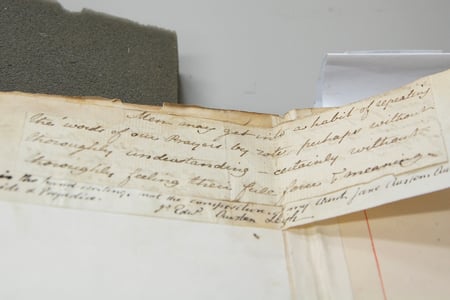 Men may get into a habit of repeating
the words of our Prayers by rote, perhaps without
thoroughly understanding – certainly without
thoroughly feeling their full force & meaning.
is in the hand writing, not the composition, of my Aunt, Jane Austen, Au
ide & Prejudice.
Austen Leigh